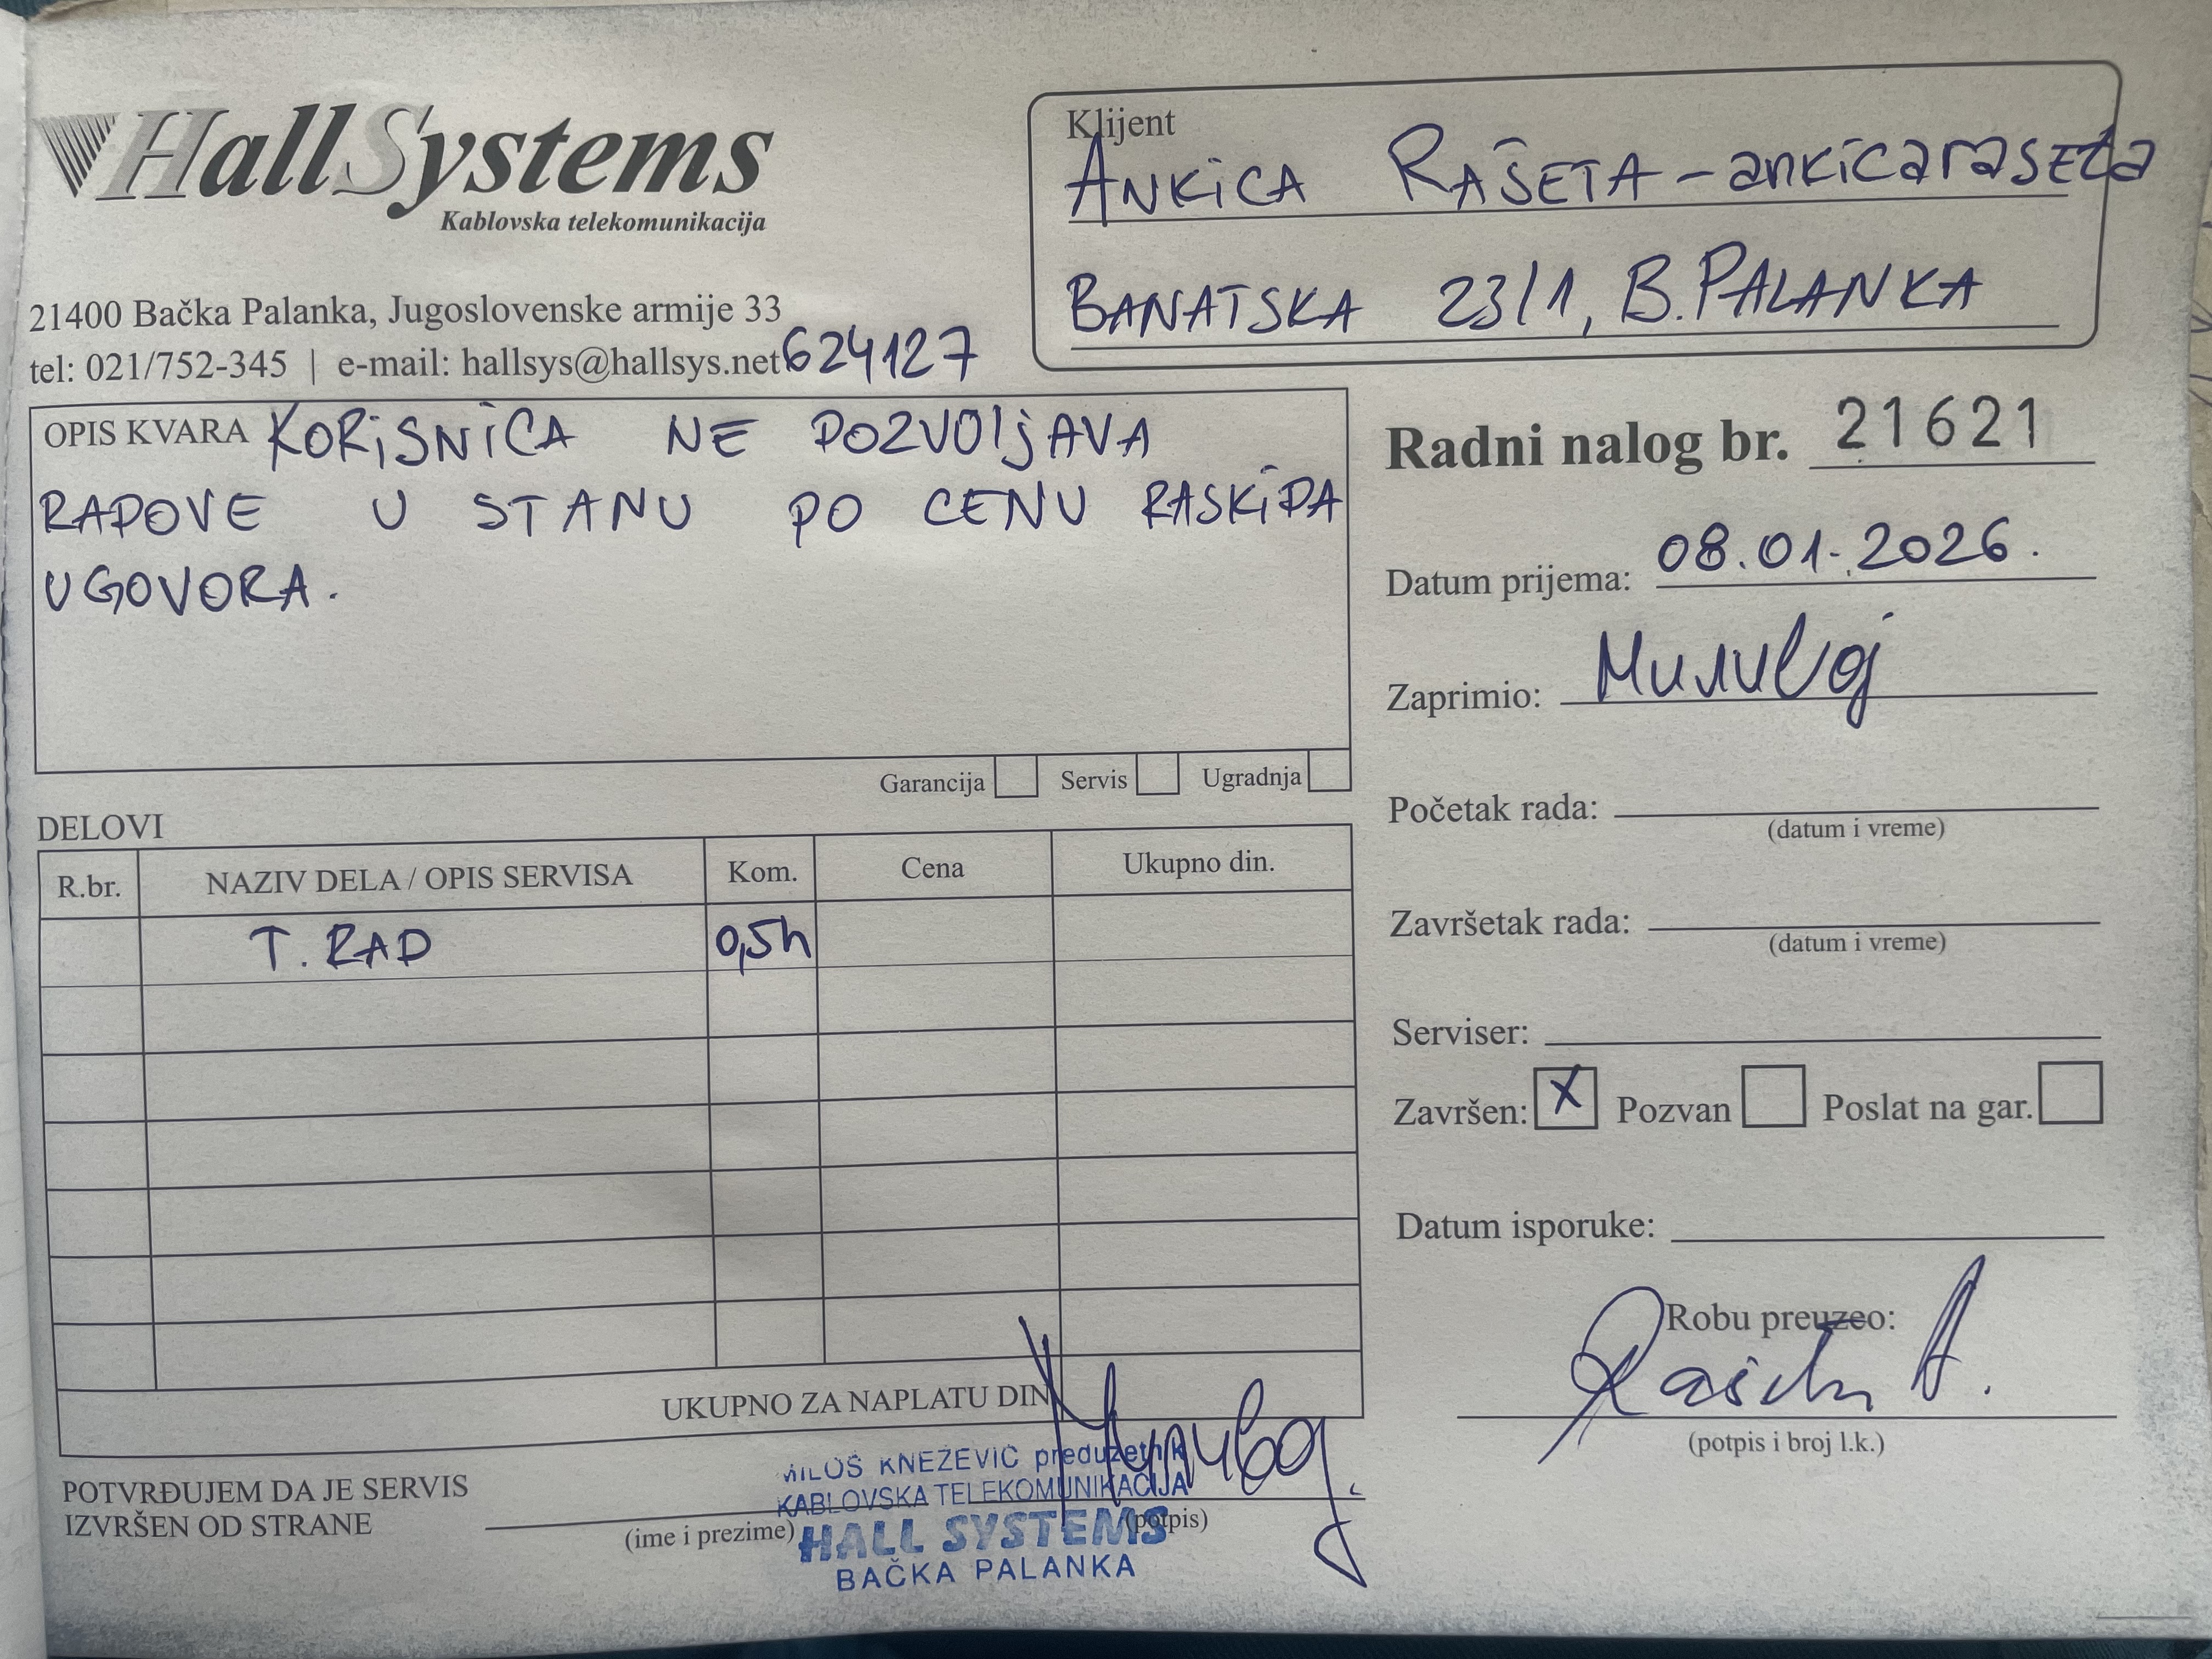 HallSystems
Kablovska telekomunikacija
21400 Bačka Palanka, Jugoslovenske armije 33
tel: 021/752-345 | e-mail: hallsys@hallsys.net 624127
Klijent
ANKiCA RAŠETA - ankicaraseta
BANATSKA 23/1, B.PALANKA
OPIS KVARA KORiSNiCA NE POZVOljAVA
RADOVE U STANU PO CENU RASKiDA
UGOVORA.
Garancija Servis Ugradnja
Radni nalog br. 21621
Datum prijema: 08.01.2026.
Zaprimio: Миливој
Početak rada:
(datum i vreme)
Završetak rada:
(datum i vreme)
Serviser:
Završen: X Pozvan Poslat na gar.
Datum isporuke:
Robu preuzeo:
Rašeta A.
(potpis i broj l.k.)
DELOVI
R.br. NAZIV DELA / OPIS SERVISA Kom. Cena Ukupno din.
T. RAD 0,5h
UKUPNO ZA NAPLATU DIN
POTVRĐUJEM DA JE SERVIS
IZVRŠEN OD STRANE
(ime i prezime) (potpis)
MILOŠ KNEŽEVIĆ preduzetnik
KABLOVSKA TELEKOMUNIKACIJA
HALL SYSTEMS
BAČKA PALANKA